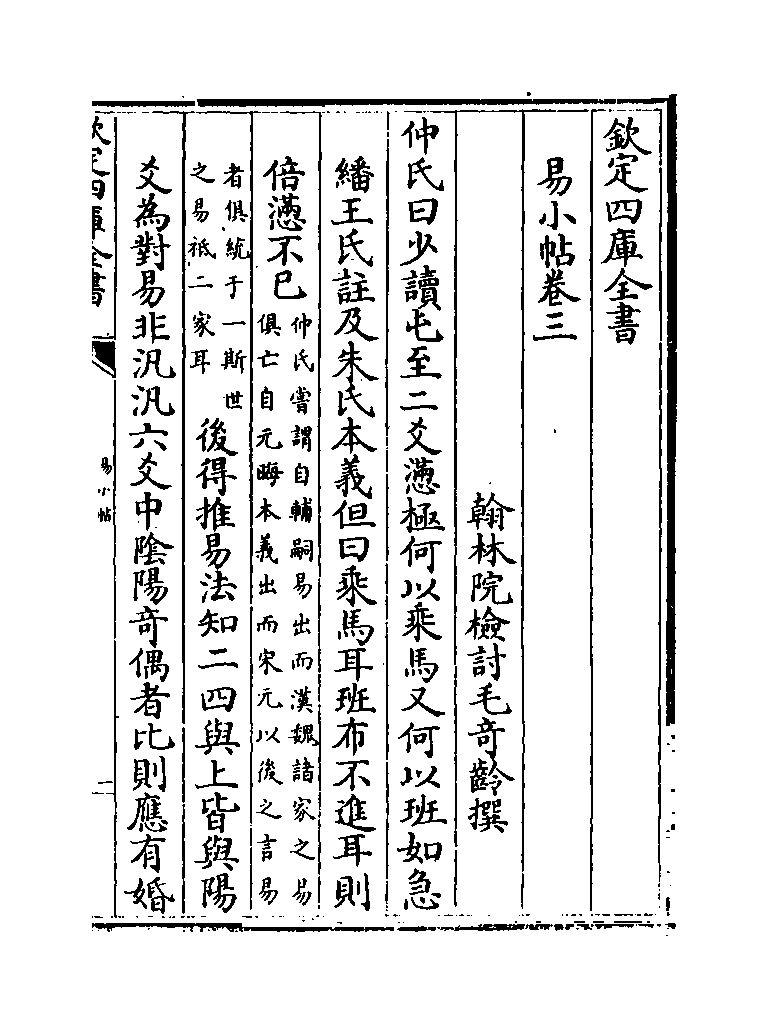 欽定四庫全書
易小帖卷三
翰林院檢討毛奇齡撰
仲氏曰少讀屯至二爻懣極何以乘馬又何以班如急
繙王氏註及朱氏本義但曰乘馬耳班布不進耳則
倍懣不已仲氏嘗謂自輔嗣易出而漢魏諸家之易
俱亡自元晦本義出而宋元以後之言易
者俱統于一斯世
之易祗二家耳後得推易法知二四與上皆與陽
爻為對易非汎汎六爻中陰陽奇偶者比則應有婚
欽定四庫全書
易小帖
一